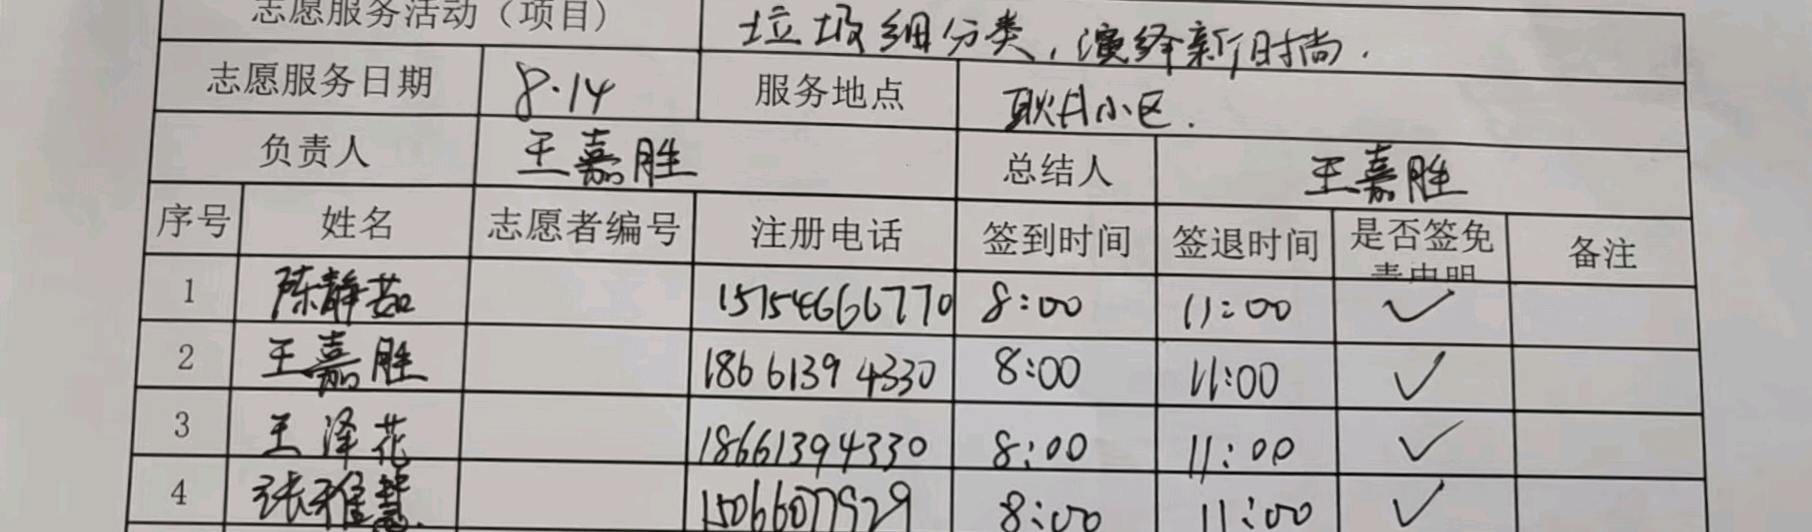 志愿服务活动（项目） 垃圾细分类，演绎新时尚.
志愿服务日期 8.14 服务地点 耿月小区.
负责人 王嘉胜 总结人 王嘉胜
序号 姓名 志愿者编号 注册电话 签到时间 签退时间 是否签免责声明 备注
1 陈静茹 15154666770 8:00 11:00 ✓
2 王嘉胜 18661394330 8:00 11:00 ✓
3 王泽花 18661394330 8:00 11:00 ✓
4 张雅慧 15066077929 8:00 11:00 ✓